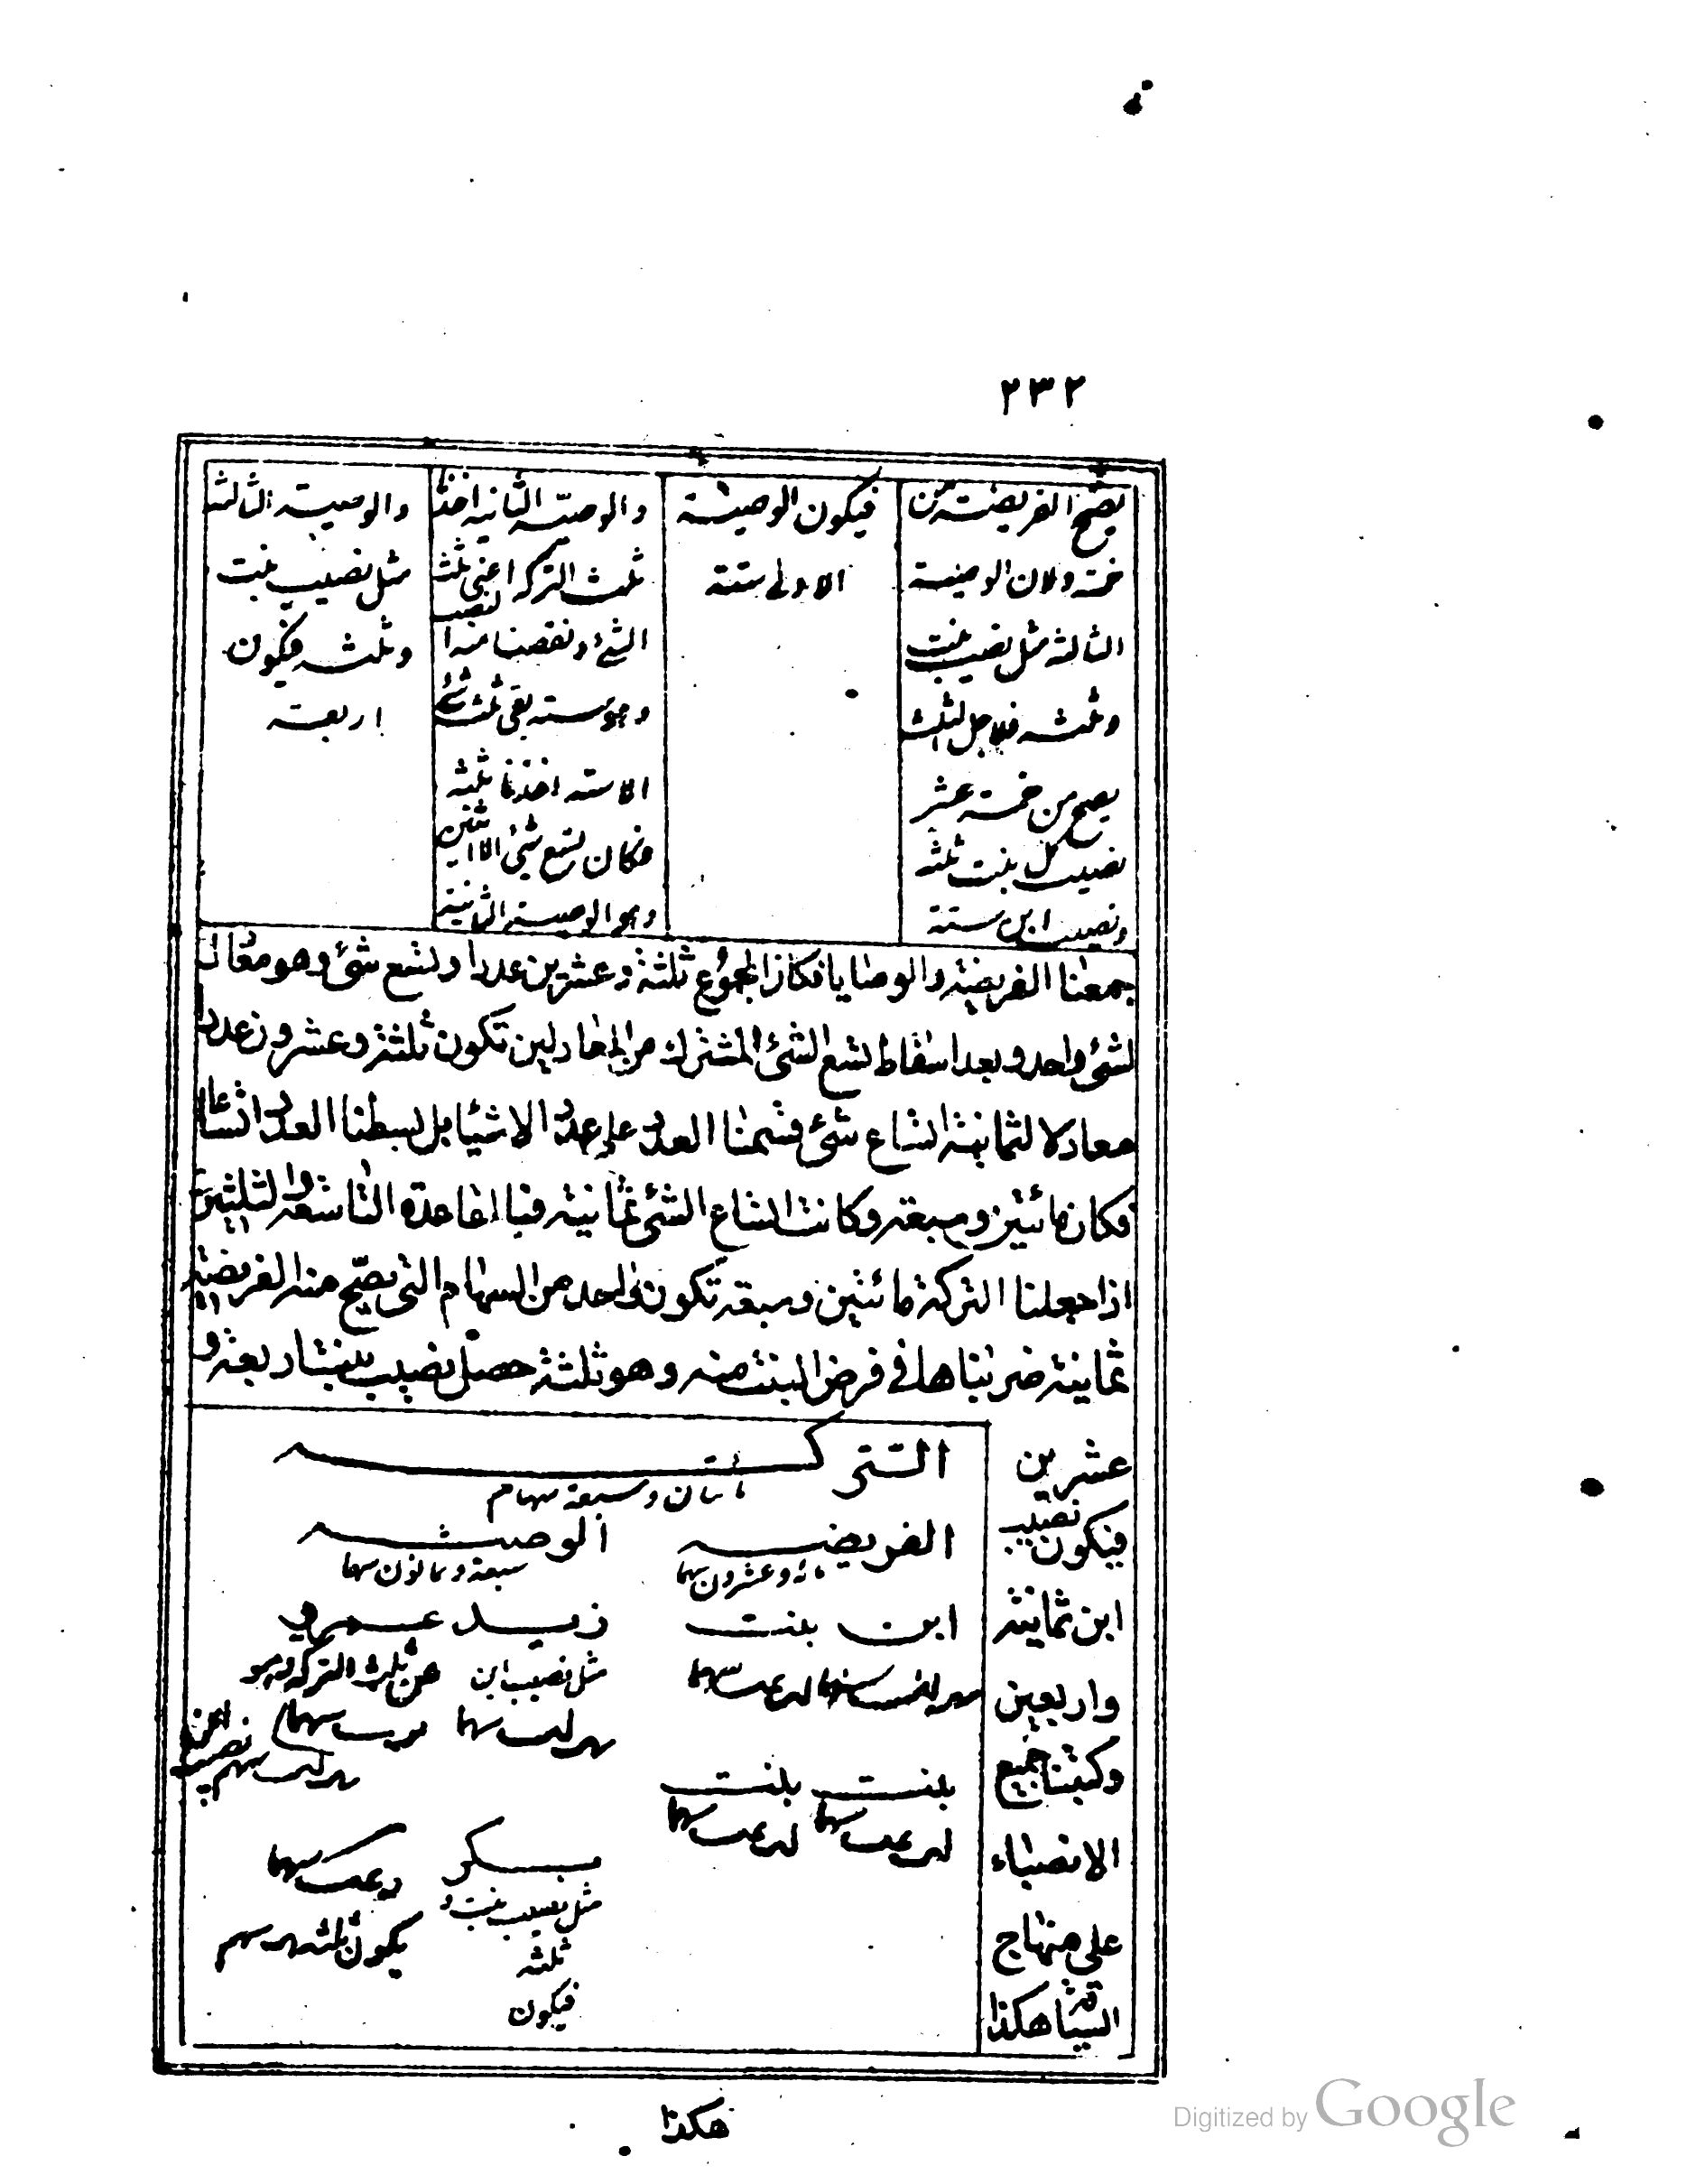 ٢٣٢
يصح الفريضة من
خمسة ولان الوصية
الثالثة مثل نصيب بنت
وثلثه فلاجل الثلث
يصح من خمسة عشر
نصيب كل بنت ثلثة
ونصيب ابن ستة
فيكون الوصية
الاولى ستة
والوصية الثانية اخذنا
ثلث التركة اعنى ثلث
الشئ ونقصنا منه النصيب
وهو ستة بقى ثلث شئ
الا ستة اخذنا ثلثه
فكان تسع شئ الا اثنين
وهو الوصية الثانية
والوصية الثالثة
مثل نصيب بنت
وثلثه فيكون
اربعة
جمعنا الفريضة والوصايا فكان المجموع ثلثة وعشرين عددا وتسع شئ وهو معادل
لشئ واحد وبعد اسقاط تسع الشئ المشترك من المعادلين تكون ثلثة وعشرون عددا
معادلا لثمانية اتساع شئ قسمنا العدد على عدد الاشياء بل بسطنا العدد اتساعا
فكان مائتين وسبعة وكانت اتساع الشئ ثمانية فبالقاعدة التاسعة والثلثين
اذا جعلنا التركة مائتين وسبعة تكون واحد من السهام التى يصح منه الفريضة
ثمانية ضربناها فى فرض البنت منه وهو ثلثة حصل نصيب بنت اربعة و
عشرين
فيكون نصيب
ابن ثمانية
واربعين
وكتبنا جميع
الانصباء
على منهاج
السياقة هكذا
التركة
مائتان وسبعة سهام
الفريضة
مائة وعشرون سهما
الوصية
سبعة وثمانون سهما
ابن بنت
زيد عمرو
مثل نصيب ابن
من ثلث التركة وهو
بنت بنت
بكر
مثل نصيب بنت و
ثلثه
فيكون
يكون ثلثه
هكذا
Digitized by Google